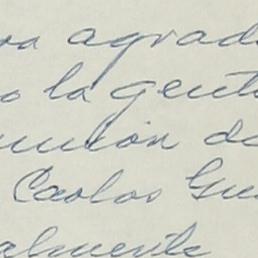 ra agrade
o la gent
unión de
Carlos Gu
almente